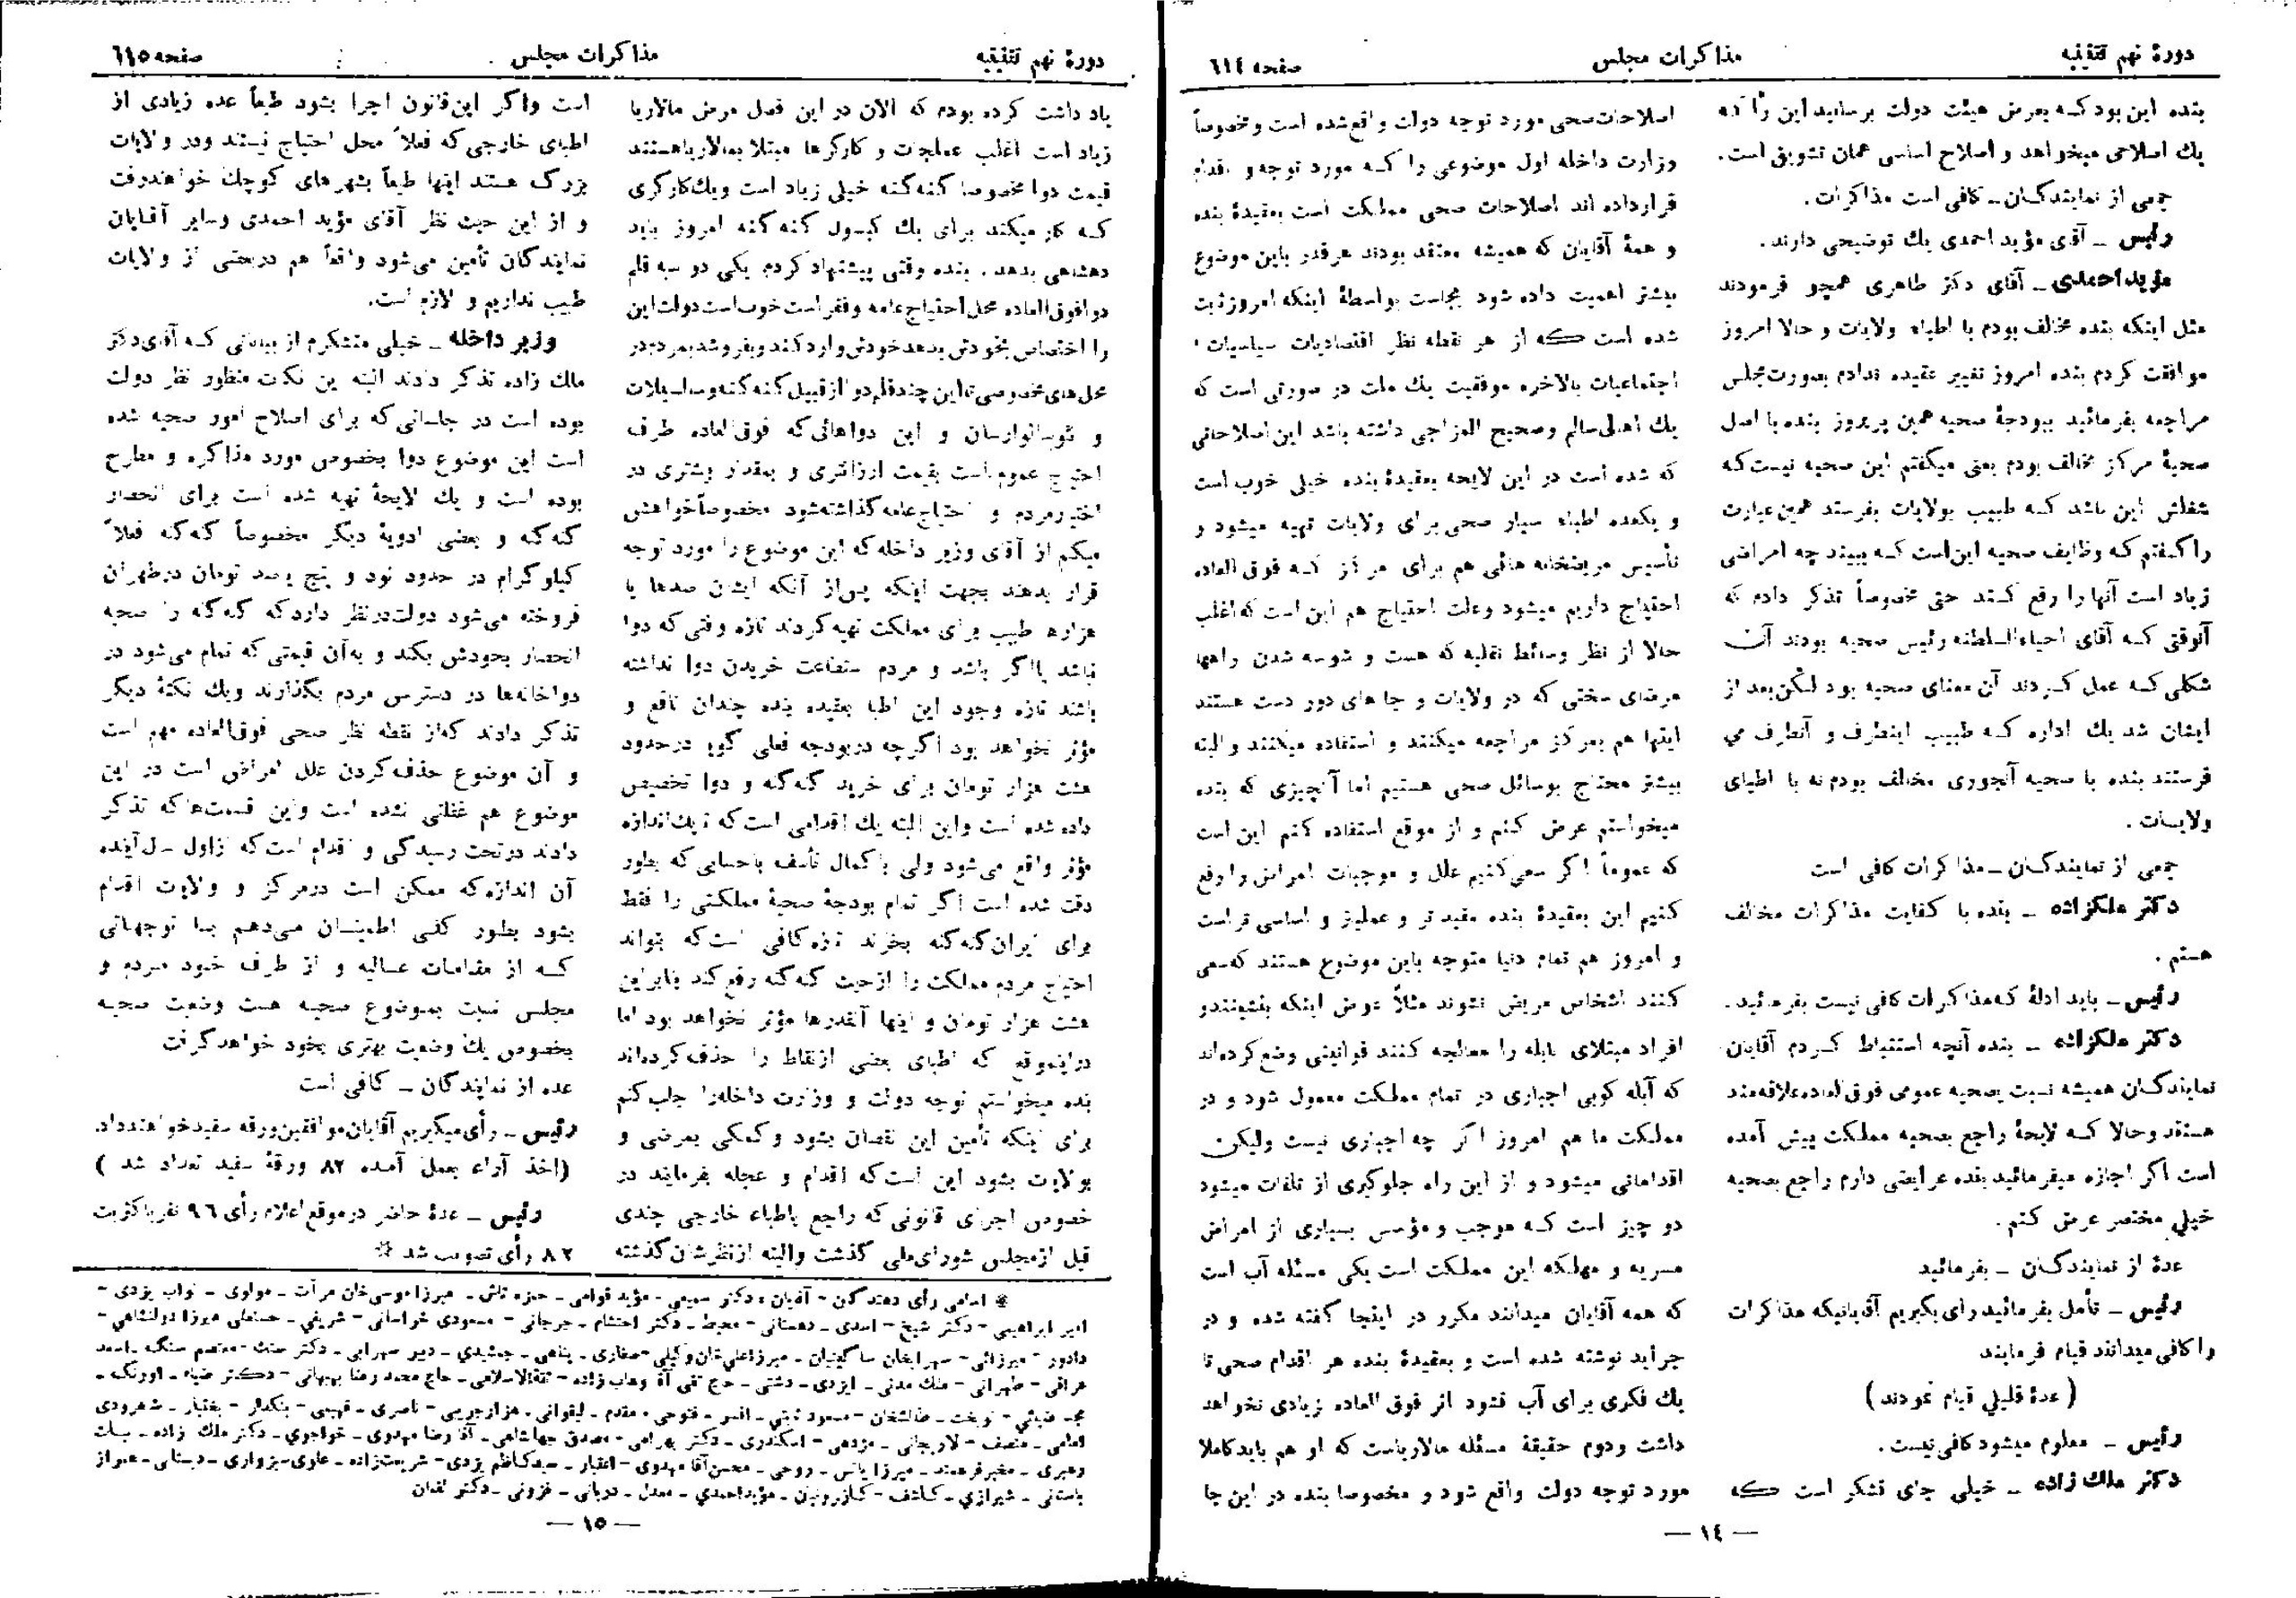 دورهٔ نهم تقنینیه
مذاکرات مجلس
صفحه ٦١٤
بنده این بود که بعرض هیئت دولت برسانید این را که
یك اصلاحی میخواهد و اصلاح اساسی همان تشویق است.
جمعی از نمایندگان ـ کافی است مذاکرات.
رئیس ـ آقای مؤید احمدی یك توضیحی دارند.
مؤید احمدی ـ آقای دکتر طاهری همچو فرمودند
مثل اینکه بنده مخالف بودم با اطباء ولایات و حالا امروز
موافقت کردم بنده امروز تغییر عقیده ندادم بصورت مجلس
مراجعه بفرمائید ببودجهٔ صحیه همین پریروز بنده با اصل
صحیهٔ مرکز مخالف بودم یعنی میگفتم این صحیه نیست که
شغلش این باشد که طبیب بولایات بفرستد همین عبارت
را گفتم که وظایف صحیه این است که ببیند چه امراضی
زیاد است آنها را رفع کند حتی مخصوصاً تذکر دادم که
آنوقتی که آقای احیاءالسلطنه رئیس صحیه بودند آن
شکلی که عمل کردند آن معنای صحیه بود لکن بعد از
ایشان شد یك اداره که طبیب اینطرف و آنطرف می
فرستند بنده با صحیه آنجوری مخالف بودم نه با اطبای
ولایات.
جمعی از نمایندگان ـ مذاکرات کافی است
دکتر ملکزاده ـ بنده با کفایت مذاکرات مخالف
هستم.
رئیس ـ باید ادلهٔ که مذاکرات کافی نیست بفرمائید.
دکتر ملکزاده ـ بنده آنچه استنباط کردم آقایان
نمایندگان همیشه نسبت بصحیه عمومی فوق العاده علاقه مند
هستند و حالا که لایحهٔ راجع بصحیه مملکت پیش آمده
است اگر اجازه میفرمائید بنده عرایضی دارم راجع بصحیه
خیلی مختصر عرض کنم.
عدهٔ از نمایندگان ـ بفرمائید
رئیس ـ تأمل بفرمائید رای بگیریم آقایانیکه مذاکرات
را کافی میدانند قیام فرمایند
(عدهٔ قلیلی قیام نمودند)
رئیس ـ معلوم میشود کافی نیست.
دکتر ملك زاده ـ خیلی جای تشکر است که
اصلاحات صحی مورد توجه دولت واقع شده است و مخصوصاً
وزارت داخله اول موضوعی را که مورد توجه و اقدام
قرار داده اند اصلاحات صحی مملکت است بعقیدهٔ بنده
و همهٔ آقایان که همیشه معتقد بودند هرقدر باین موضوع
بیشتر اهمیت داده شود بجاست بواسطهٔ اینکه امروز ثابت
شده است که از هر نقطه نظر اقتصادیات سیاسیات
اجتماعیات بالاخره موفقیت یك ملت در صورتی است که
یك اهالی سالم و صحیح المزاجی داشته باشد این اصلاحاتی
که شده است در این لایحه بعقیدهٔ بنده خیلی خوب است
و یکعده اطباء سیار صحی برای ولایات تهیه میشود و
تأسیس مریضخانه هائی هم برای مرکز که فوق العاده
احتیاج داریم میشود و علت احتیاج هم این است که اغلب
حالا از نظر وسائط نقلیه که هست و شوسه شدن راهها
مرضای سختی که در ولایات و جاهای دور دست هستند
اینها هم بمرکز مراجعه میکنند و استفاده میکنند و البته
بیشتر محتاج بوسائل صحی هستیم اما آنچیزی که بنده
میخواستم عرض کنم و از موقع استفاده کنم این است
که عموماً اگر سعی کنیم علل و موجبات امراض را رفع
کنیم این بعقیدهٔ بنده مفید تر و عملیتر و اساسی تر است
و امروز هم تمام دنیا متوجه باین موضوع هستند که سعی
کنند اشخاص مریض نشوند مثلاً عوض اینکه بنشینند و
افراد مبتلای بابله را معالجه کنند قوانینی وضع کرده اند
که آبله کوبی اجباری در تمام مملکت معمول شود و در
مملکت ما هم امروز اگر چه اجباری نیست ولیکن
اقداماتی میشود و از این راه جلوگیری از تلفات میشود
دو چیز است که موجب و مؤسس بسیاری از امراض
مسریه و مهلکه این مملکت است یکی مسئله آب است
که همه آقایان میدانند مکرر در اینجا گفته شده و در
جراید نوشته شده است و بعقیدهٔ بنده هر اقدام صحی تا
یك فکری برای آب نشود اثر فوق العاده زیادی نخواهد
داشت و دوم حقیقة مسئله مالاریاست که او هم باید کاملا
مورد توجه دولت واقع شود و مخصوصا بنده در این جا
— ١٤ —
دورهٔ نهم تقنینیه
مذاکرات مجلس
صفحه ٦١٥
یاد داشت کرده بودم که الان در این فصل مرض مالاریا
زیاد است اغلب عملجات و کارگرها مبتلا بمالاریا هستند
قیمت دوا مخصوصا گنه گنه خیلی زیاد است و یك کارگری
که کار میکند برای یك کپسول گنه گنه امروز باید
دهشاهی بدهد. بنده وقتی پیشنهاد کردم یکی دو سه قلم
دوا فوق العاده محل احتیاج عامه و فقر است خوب است دولت این
را اختصاص بخودش بدهد خودش وارد کند و بفروشد بمردم در
محل های مخصوصی تا این چند قلم دوا از قبیل گنه گنه و سالسیلات
و نئوسالوارسان و این دواهائی که فوق العاده طرف
احتیاج عموم است بقیمت ارزانتری و بمقدار بیشتری در
اختیار مردم و احتیاج عامه گذاشته شود مخصوصاً خواهش
میکنم از آقای وزیر داخله که این موضوع را مورد توجه
قرار بدهند بجهت اینکه پس از آنکه ایشان صدها یا
هزارها طبیب برای مملکت تهیه کردند تازه وقتی که دوا
نباشد یا اگر باشد و مردم استطاعت خریدن دوا نداشته
باشند تازه وجود این اطبا بعقیده بنده چندان نافع و
مؤثر نخواهد بود اگرچه در بودجه فعلی گویا در حدود
هشت هزار تومان برای خرید گنه گنه و دوا تخصیص
داده شده است و این البته یك اقدامی است که تا یك اندازه
مؤثر واقع می شود ولی با کمال تأسف با حسابی که بطور
دقت شده است اگر تمام بودجهٔ صحیهٔ مملکتی را فقط
برای ایران گنه گنه بخرند تازه کافی است که بتواند
احتیاج مردم مملکت را از حیث گنه گنه رفع کند بنابراین
هشت هزار تومان و اینها آنقدرها مؤثر نخواهد بود اما
در اینموقع که اطبای بعضی از نقاط را حذف کرده اند
بنده میخواستم توجه دولت و وزارت داخله را جلب کنم
برای اینکه تأمین این نقصان بشود و کمکی بمرضی و
بولایت بشود این است که اقدام و عجله بفرمایند در
خصوص اجرای قانونی که راجع باطباء خارجی چندی
قبل از مجلس شورای ملی گذشت و البته از نظرشان گذشته
است و اگر این قانون اجرا بشود طبعاً عده زیادی از
اطبای خارجی که فعلاً محل احتیاج نیستند و در ولایات
بزرگ هستند اینها طبعاً بشهرهای کوچك خواهند رفت
و از این حیث نظر آقای مؤید احمدی و سایر آقایان
نمایندگان تأمین می شود واقعاً هم در بعضی از ولایات
طبیب نداریم و لازم است.
وزیر داخله ـ خیلی متشکرم از بیاناتی که آقای دکتر
ملك زاده تذکر دادند البته این نکات منظور نظر دولت
بوده است در جلساتی که برای اصلاح امور صحیه شده
است این موضوع دوا بخصوص مورد مذاکره و مطرح
بوده است و یك لایحهٔ تهیه شده است برای انحصار
گنه گنه و بعضی ادویهٔ دیگر مخصوصاً گنه گنه فعلاً
کیلوگرام در حدود نود و پنج و صد تومان در طهران
فروخته می شود دولت در نظر دارد که گنه گنه را صحیه
انحصار بخودش بکند و به آن قیمتی که تمام می شود در
دواخانه ها در دسترس مردم بگذارند و یك نکتهٔ دیگر
تذکر دادند که از نقطه نظر صحی فوق العاده مهم است
و آن موضوع حذف کردن علل امراض است در این
موضوع هم غفلتی نشده است و این قسمت ها که تذکر
دادند در تحت رسیدگی و اقدام است که از اول سال آینده
آن اندازه که ممکن است در مرکز و ولایات اقدام
بشود بطور کلی اطمینان می دهم با توجهاتی
که از مقامات عالیه و از طرف خود مردم و
مجلس نسبت بموضوع صحیه هست وضعیت صحیه
بخصوص یك وضعیت بهتری بخود خواهد گرفت
عده از نمایندگان ـ کافی است
رئیس ـ رأی میگیریم آقایان موافقین ورقه سفید خواهند داد.
(اخذ آراء بعمل آمده ٨٢ ورقهٔ سفید تعداد شد)
رئیس ـ عدهٔ حاضر در موقع اعلام رأی ٩٦ نفر باکثریت
٨٢ رأی تصویب شد *
* اسامی رأی دهندگان - آقایان: دکتر سمیعی - مؤید قوامی - حمزه تاش - میرزا موسی خان مرآت ـ مولوی ـ نواب یزدی -
امیر ابراهیمی - دکتر شیخ - اسدی ـ دهستانی - محیط ـ دکتر احتشام ـ جرجانی - مسعودی خراسانی - شریفی ـ حسنعلی میرزا دولتشاهی -
دادور - میرزائی - سهرابخان ساگینیان ـ میرزا علی خان وکیلی - صفاری ـ پناهی ـ جمشیدی ـ دبیر سهرابی ـ دکتر سنك - معتصم سنگ ـ اسعد
عراقی - طهرانی - ملك مدنی ـ ایزدی ـ دشتی ـ حاج تقی آقا وهاب زاده - ثقةالاسلامی ـ حاج محمد رضا بهبهانی - دکتر ضیاء ـ اورنگ ـ
مجد ضیائی - نوبخت ـ طالشخان - مسعود ثابتی ـ افسر ـ فتوحی ـ مقدم ـ لیقوانی ـ هزارجریبی - ناصری ـ فهیمی - بنکدار - بختیار ـ شاهرودی
امامی ـ منصف - لاریجانی ـ مژدهی - اسکندری ـ دکتر بهرامی - مصدق جهانشاهی ـ آقا رضا مهدوی ـ خواجوی ـ دکتر ملك زاده ـ بیات
رهبری ـ مخبر فرهمند ـ میرزا یانس ـ روحی ـ محسن آقا مهدوی - اعتبار ـ سید کاظم یزدی - شریعت زاده ـ علوی سبزواری ـ دبستانی ـ همراز
باستانی ـ شیرازی ـ کاشف - کازرونیان ـ مؤید احمدی ـ معدل ـ دربانی ـ قزونی ـ دکتر لقمان
— ١٥ —